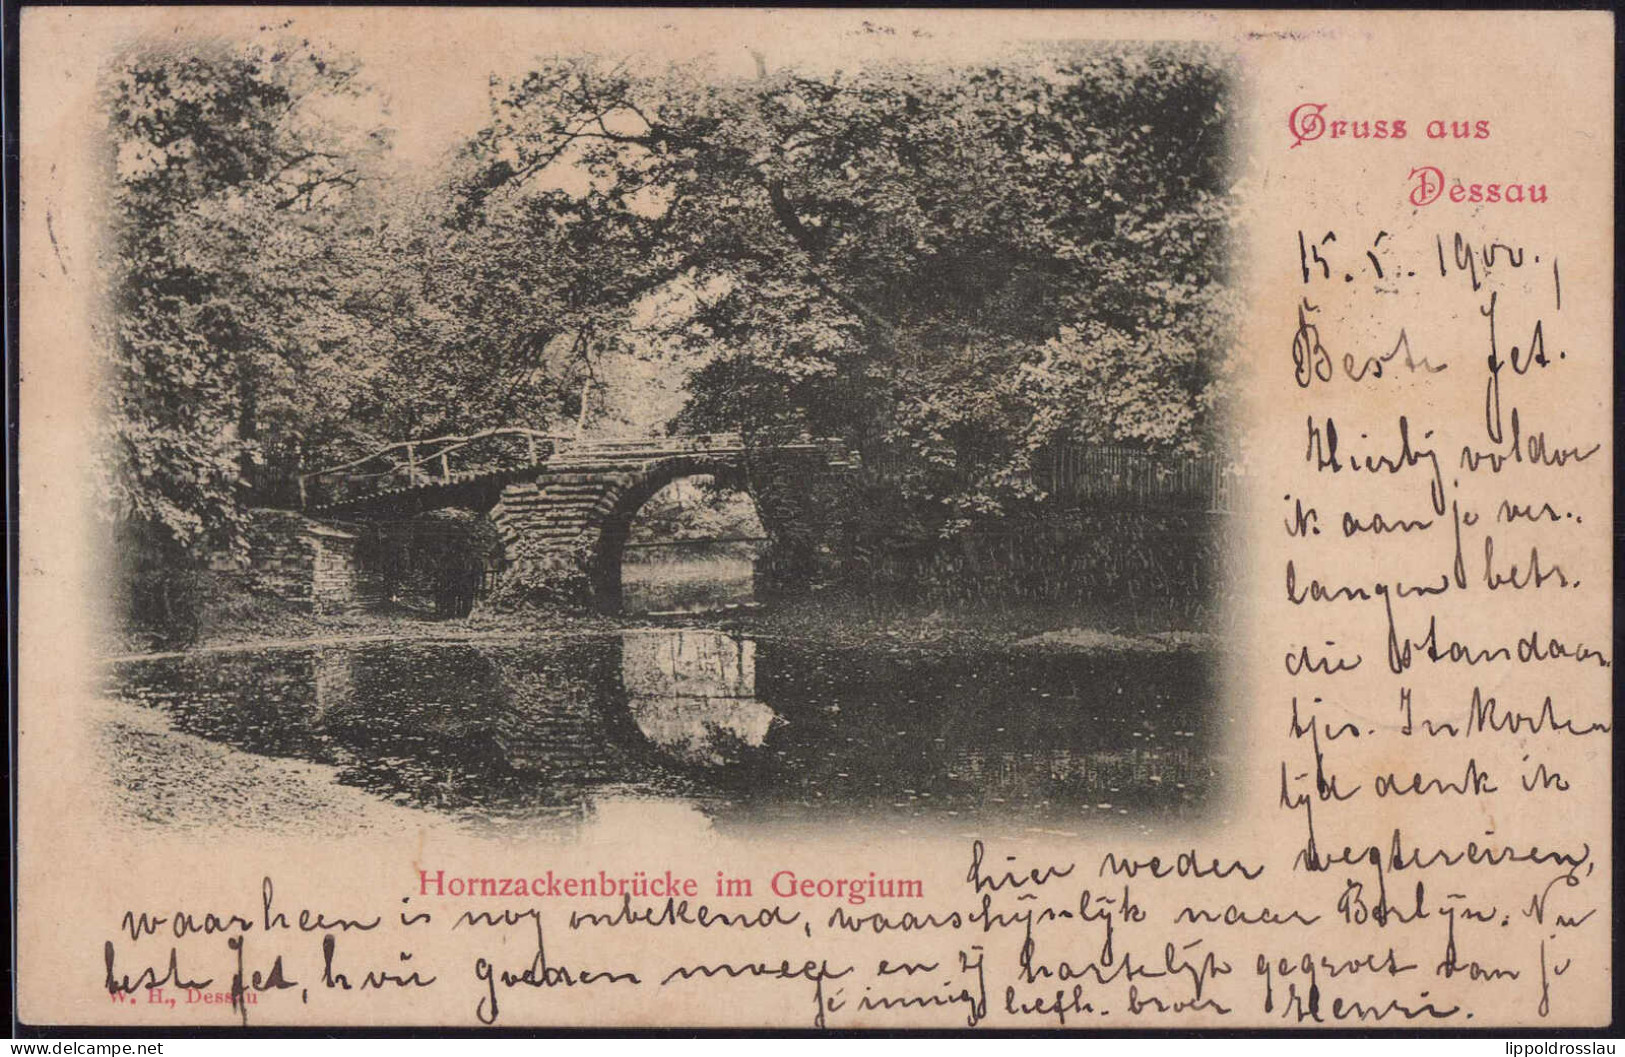 Gruss aus
Dessau
15. 5. 1900.,
Beste Jet.
Hierbij voldoe
ik aan je ver-
langen betr.
die standaar-
tjes. In korten
tijd denk ik
hier weder wegtereizen,
Hornzackenbrücke im Georgium
waarheen is nog onbekend, waarschijnlijk naar Berlijn. Nu
beste Jet, hou goeden moed en zij hartelijk gegroet van je
W. H., Dessau
je innig liefh. broer Henri.
lippoldrosslau